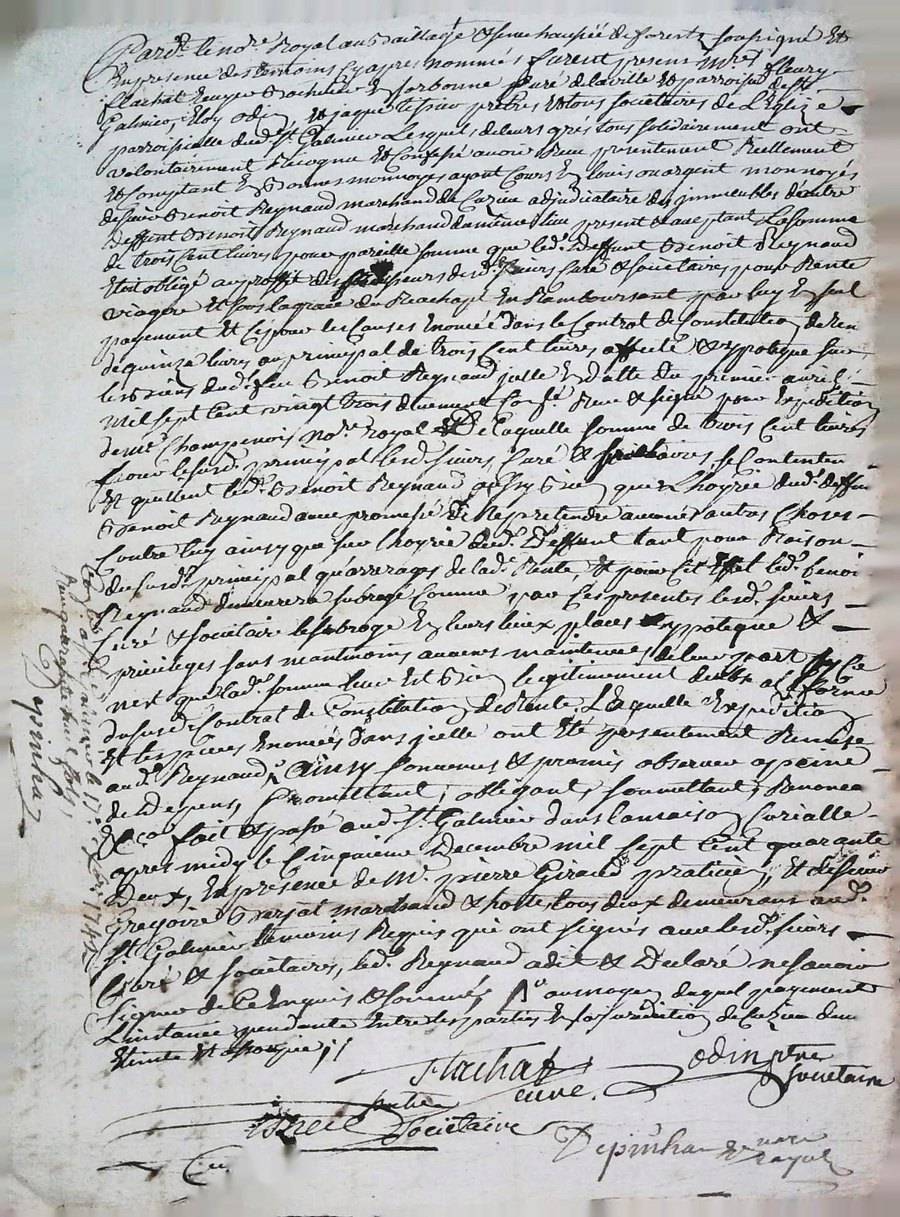 Pard.t le no.re Royal au Bailliage & senechaussée de forest soussigné Et
En presence des temoins cy apres nommés furent presens M.res fleury
flachat Ecuyer Bachelier En sorbonne Curé de la ville Et parroisse de St
Galmier, Eloy odin, Et jaque tissier prêtres Et tous societaires de L'Eglise
parroissielle dud. St. Galmier Lesquels de leurs grés tous solidairement ont
volontairement Recognu Et Confessé avoir Reçu presentement Reellement
Et Comptant En Bonnes monnoyes ayant Cours En louis ou argent monnoyés
de sieur Benoit Reynaud marchand de Cuzieu adjudicataire des immeubles de autre
deffunt Benoit Reynaud marchand du même lieu present & acceptant La somme
de trois Cent livres pour pareille somme que led. Deffunt Benoit Reynaud
s'etoit obligé au proffit des predecesseurs desd. sieurs Curé & societaires pour Rente
viagere Et sous la grace du Reachapt En Ramboursant par luy En seul
payement Et Ce pour les Causes Enoncée dans le Contrat de Constitution de Rente
de quinze livres au principal de trois Cent livres affecté & ypotequé sur
les Biens dud. feu Benoit Reynaud jcelle En datte du premier avril
mil sept Cent vingt trois duement Conf.lé Reçu & signé pour Expedition
de M.e Champenois no.re Royal De laquelle somme de trois Cent livres
pour le susd. principal lesd. sieurs Curé & societaires se Contentent
Et quittent led. Benoit Reynaud aussy Bien que L'hoyrie dud. deffunt
Benoit Reynaud avec promesse De Ne pretendre aucunes autres Choses
Contre luy ainsy que sur L'hoyrie dud. Deffunt tant pour Raison
du susd. principal qu'arrerages de lad. Rente, & pour Cet Effet led. benoit
Reynaud demeurera subrogé Comme par Ces presentes lesd. sieurs
Curé & societaire le subroge En leurs lieux places ypoteque &
privileges sans neantmoins aucunes maintenue de leur part sy Ce
n'est que lad. somme leur Est Bien legitimement deüe a forme
du susd. Contrat de Constitution de Rente, Laquelle Expedition
Et les pieces Enoncées dans jcelle ont Eté presentement Remise
aud. Reynaud, Ainsy Convenus & promis observer a peine
de Depens, promettant, obligeant, soumettant, Renoncant
&ca fait & passé aud. St. Galmier dans la maison Curialle
apres midy le Cinquieme Decembre mil sept Cent quarante
Deux, En presence de M.e pierre Giraud praticien, Et de sieur
Gregoire Berjat marchand & hoste tous deux demeurans aud.
St. Galmier temoins Requis qui ont signés avec lesd. sieurs
Curé & societaires, led. Reynaud a dit & Declaré ne savoir
signer de Ce Enquis & sommés au moyen duquel payement
L'instance pendante Entre les parties En la juridiction de Cuzieu demeure
Eteinte Et assoupie //
flachat
curé.
odin ptre
societaire
tissier ptre
Societaire
Depinhac
no.re
royal
Con.lé a St Galmier le 17e Xbre 1742
Reçu quarante huit sols,
Depinhac